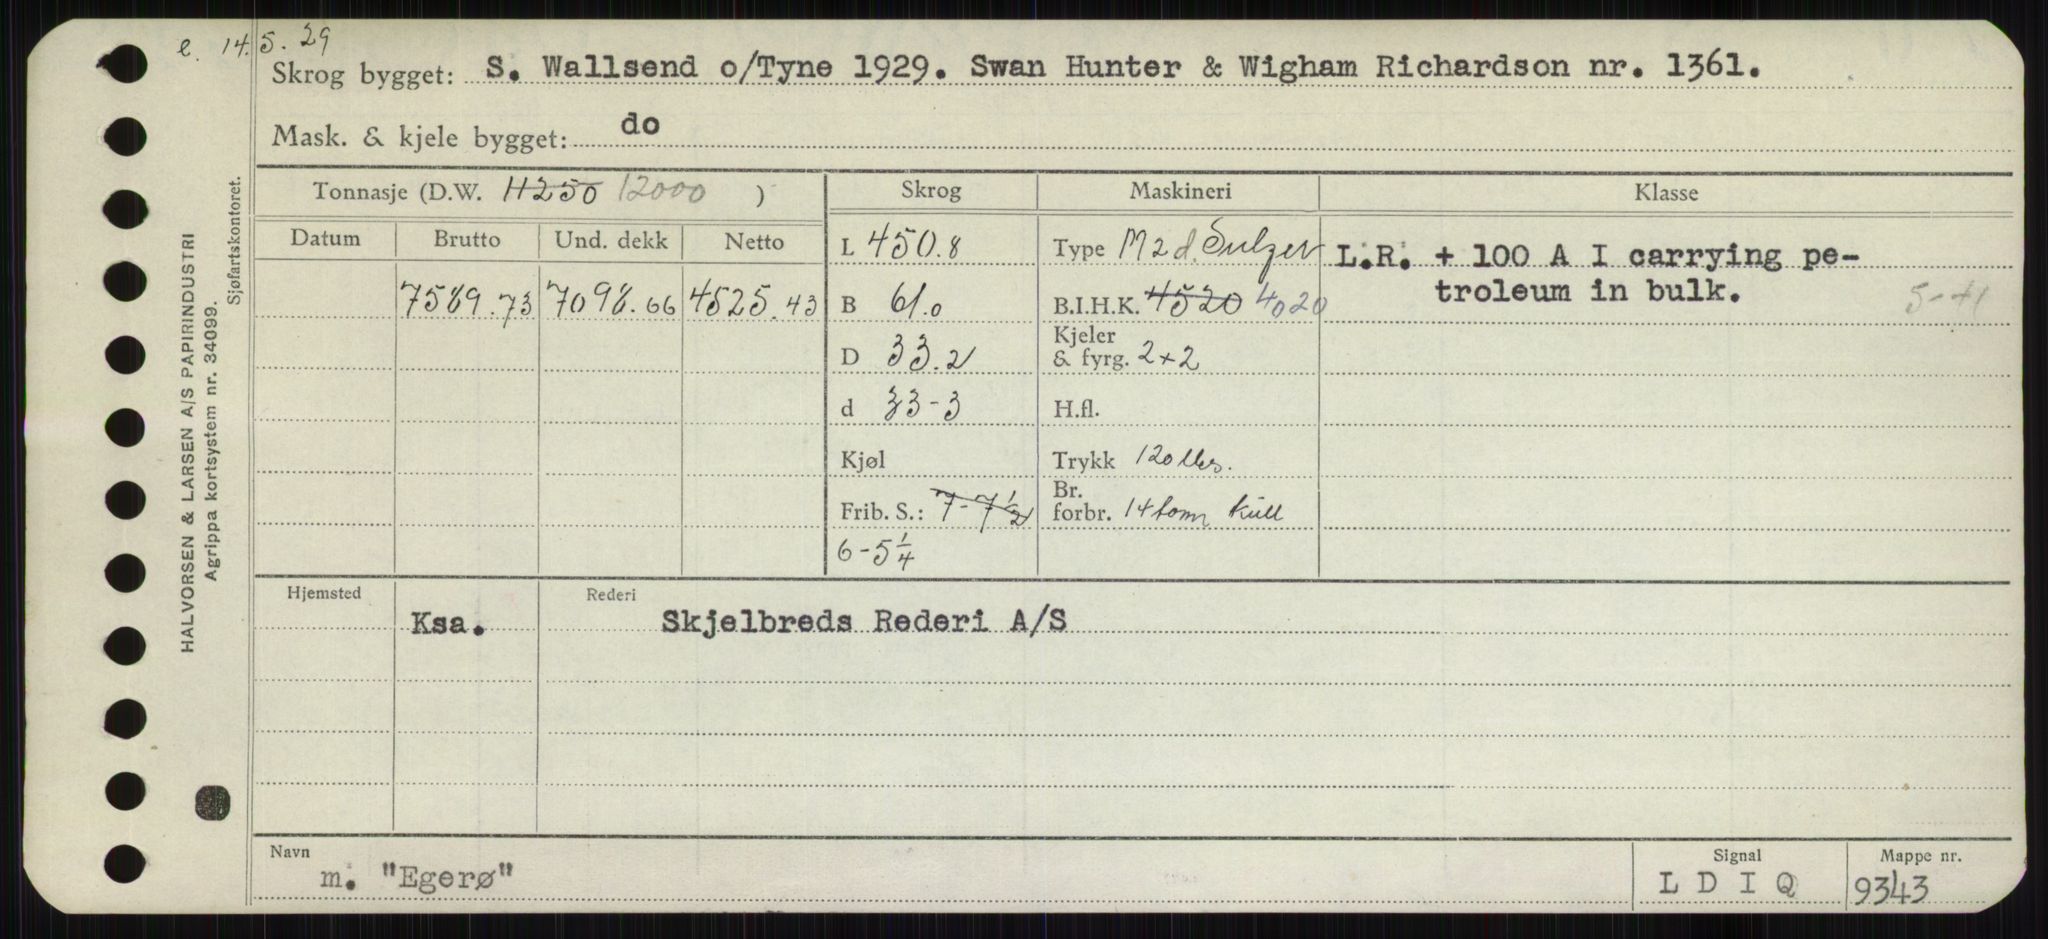 e. 14.5.29
Skrog bygget: S. Wallsend o/Tyne 1929. Swan Hunter & Wigham Richardson nr. 1361.
Mask. & kjele bygget: do
Tonnasje (D.W. 11250 12000 )
Skrog
Maskineri
Klasse
Datum Brutto Und. dekk Netto
7589.73 7098.66 4525.43
L 450.8
B 61.0
D 33.2
d 33-3
Kjøl
Frib. S.: 7-7 1/2
6-5 1/4
Type M 2 d. Sulzer
B.I.H.K. 4520 4020
Kjeler
& fyrg. 2+2
H.fl.
Trykk 120 lbs.
Br.
forbr. 14 tonn kull
L.R. + 100 A I carrying pe-
troleum in bulk.
5-41
Hjemsted Rederi
Ksa. Skjelbreds Rederi A/S
Navn Signal Mappe nr.
m. "Egerø" L D I Q 9343
HALVORSEN & LARSEN A/S PAPIRINDUSTRI
Agrippa kortsystem nr. 34099.
Sjøfartskontoret.